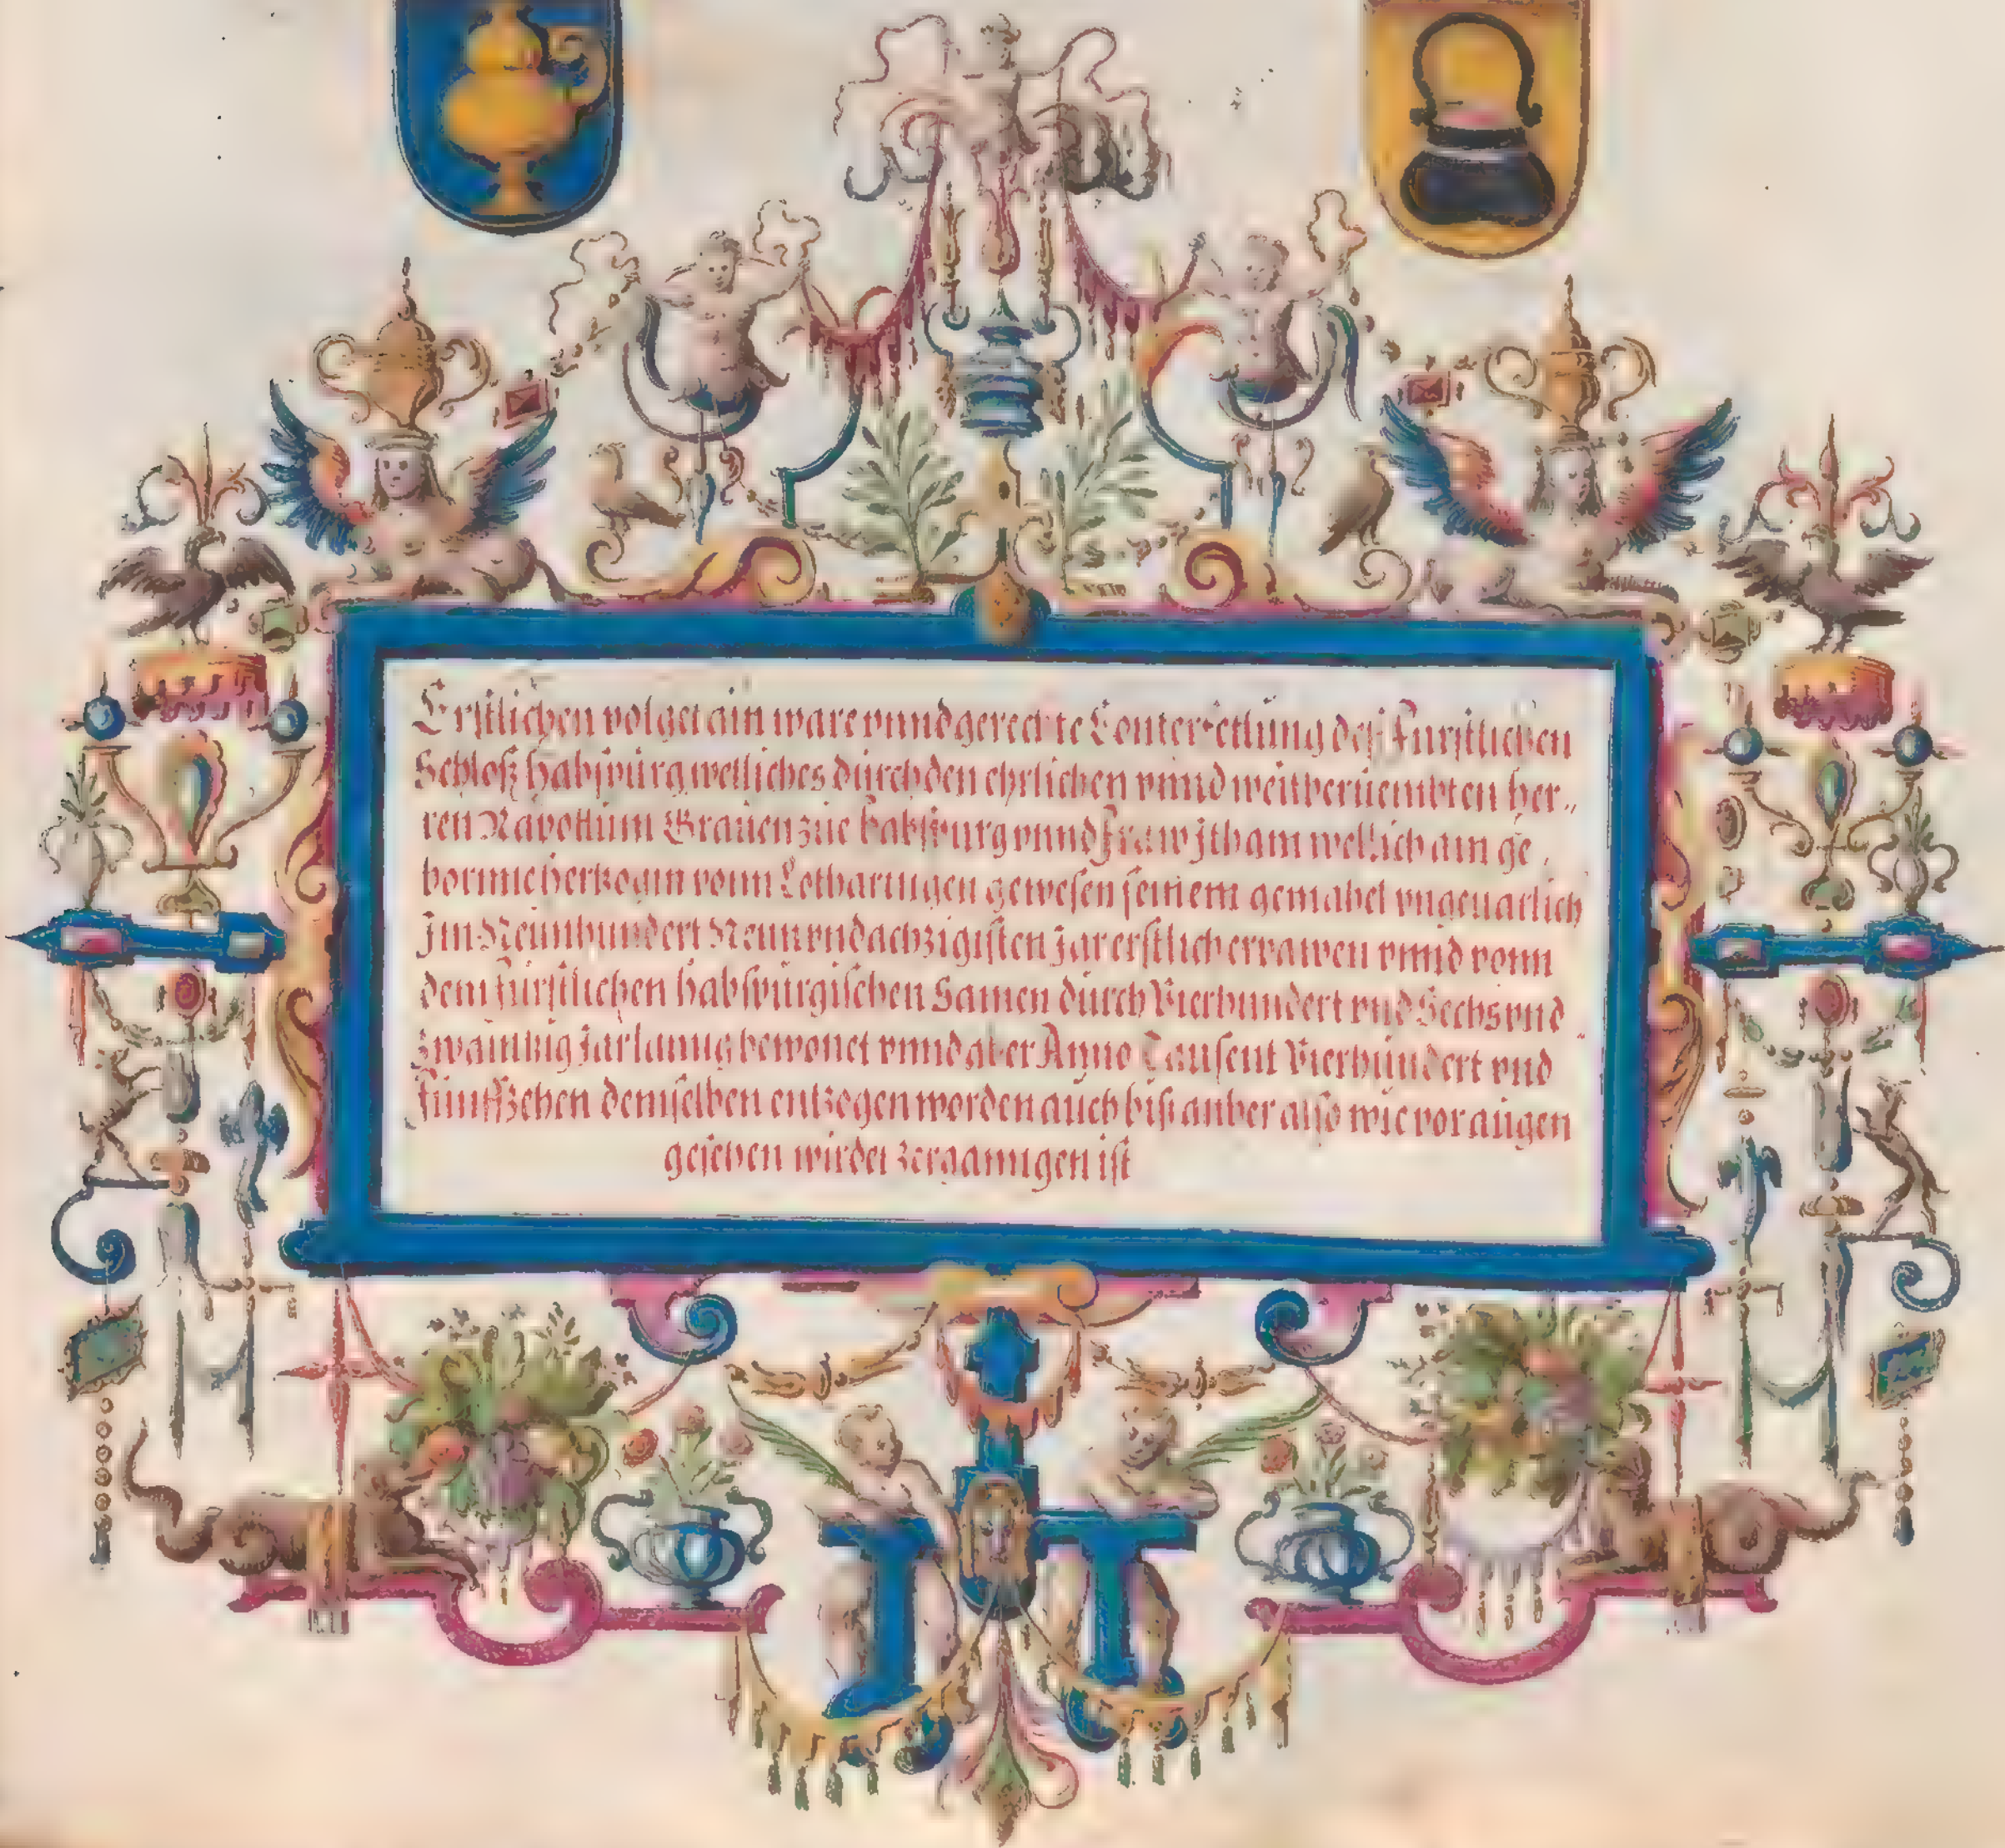 Erstlichen volget ain ware vnnd gerechte Conterfettung deß Furstlichen
Schloß Habspurg welliches durch den ehrlichen vnnd weitberuembten her„
ren Rapottum Grauen zue habspurg vnnd Fraw Itham wellich ain ge„
bornne herkogin vonn Lotharingen gewesen seinem gemahel vngeuarlich
Im Neünhundert Neunvndachzigisten Jar erstlich erpawen vnnd vonn
dem fürstlichen habspurgischen Samen durch Vierhundert vnd Sechsvnd
zwaintzig Jarlanng bewonet vnnd aber Anno Tausent Vierhundert vnd
fünffzehen demselben entzogen worden auch biß anher also wie vor augen
gesehen wirdet zergangen ist